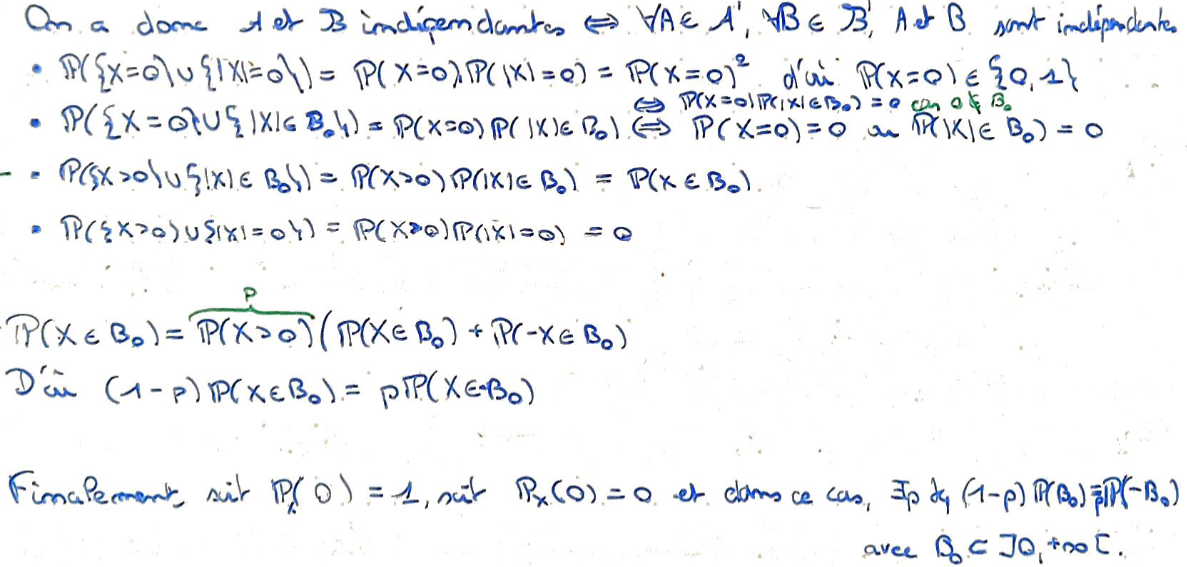 On a donc A et B indépendantes ⇔ ∀A ∈ A', ∀B ∈ B', A et B sont indépendantes
• P({X=0}∪{|X|=0}) = P(X=0).P(|X|=0) = P(X=0)² d'où P(X=0) ∈ {0,1}
⇔ P(X=0)P(|X|∈B₀) = 0 car 0 ∉ B₀
• P({X=0}∪{|X|∈B₀}) = P(X=0)P(|X|∈B₀) ⇔ P(X=0)=0 ou P(|X|∈B₀) = 0
- • P({X>0}∪{|X|∈B₀}) = P(X>0)P(|X|∈B₀) = P(X∈B₀).
• P({X>0}∪{|X|=0}) = P(X>0)P(|X|=0) = 0
p
P(X∈B₀) = P(X>0)(P(X∈B₀) + P(-X∈B₀)
D'où (1-p)P(X∈B₀) = pP(X∈-B₀)
Finalement, soit Pₓ(0) = 1, soit Pₓ(0) = 0 et dans ce cas, ∃p tq (1-p)P(B₀) = pP(-B₀)
avec B₀ ⊂ ]0,+∞[.